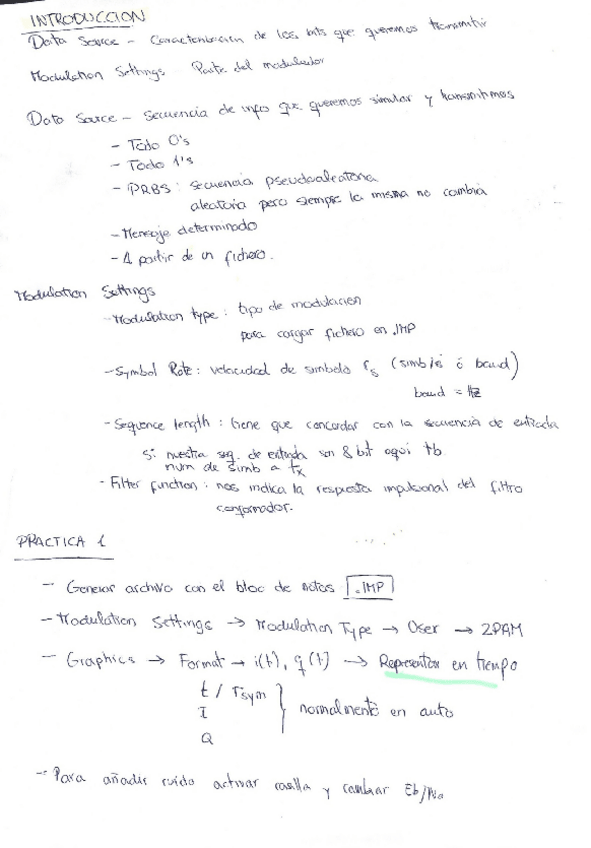 INTRODUCCION
Data Source - Caracterización de los bits que queremos transmitir
Modulation Settings Parte del modulador
Data Source - Secuencia de info que queremos simular y transmitimos
- Todo 0's
- Todo 1's
- PRBS: secuencia pseudoaleatoria
aleatoria pero siempre la misma no cambia
- Mensaje determinado
- A partir de un fichero.
Modulation Settings
- Modulation type: tipo de modulacion
para cargar fichero en .IMP
- Symbol Rate: velocidad de simbolo rs (simb/s ó baud)
baud = Hz
- Sequence length: tiene que concordar con la secuencia de entrada
Si nuestra seq. de entrada son 8 bit aqui tb
num de simb a tx
- Filter function: nos indica la respuesta impulsional del filtro
conformador.
PRACTICA 1
- Generar archivo con el bloc de notas .IMP
- Modulation Settings → Modulation Type → User → 2PAM
- Graphics → Format → i(t), q(t) → Representar en tiempo
t / Tsym
I } normalmente en auto
Q
- Para añadir ruido activar casilla y cambiar Eb/No